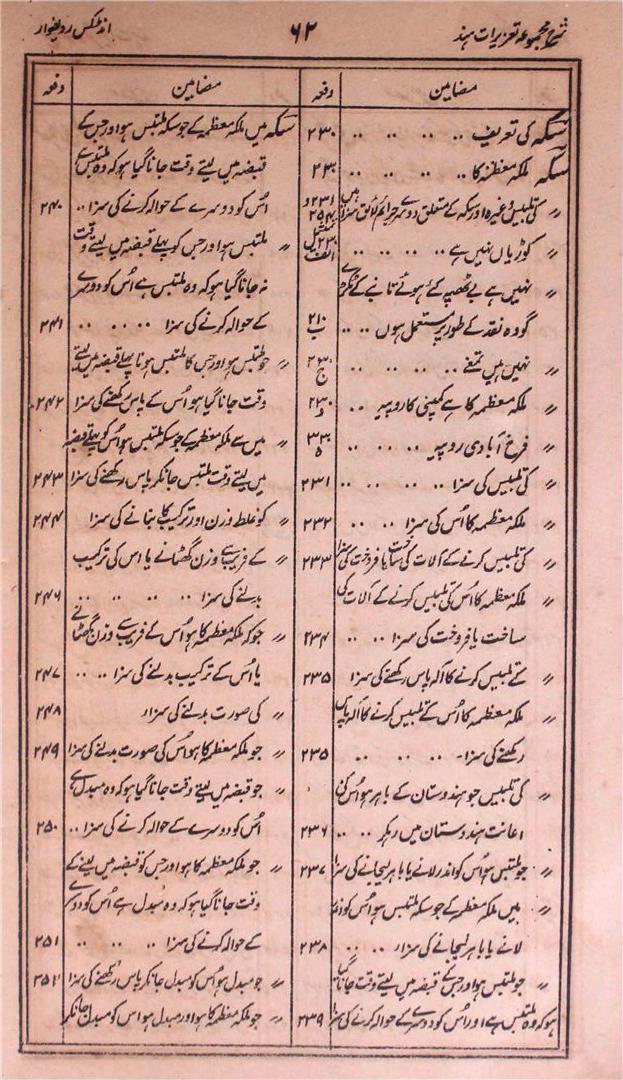 شرح مجموعہ تعزیرات ہند
۶۲
انڈکس ردیفوار
مضامین دفعہ
سکہ کی تعریف .. .. .. .. ۲۳۰
سکہ ملکہ معظمہ کا .. .. .. .. ۲۳۰
〃 کی تلبیس وغیرہ اور سکہ کے متعلق دوسرے جرائم لائق سزا ہیں ۲۳۱ و ۲۵۴
〃 کوڑیاں نہیں ہے .. .. .. .. ۲۳۰ الف
〃 نہیں ہے بے ٹھپہ کئے ہوئے تانبے کے ٹکڑے
گو وہ نقد کے طور پر مستعمل ہوں .. .. ۲۱۰ ب
〃 نہیں ہیں تمغے .. .. .. .. ۲۳۰ ج
〃 ملکہ معظمہ کا ہے کمپنی کا روپیہ .. .. ۲۳۰ د
〃 فرخ آبادی روپیہ .. .. .. ۲۳۰ ہ
〃 کی تلبیس کی سزا .. .. .. .. ۲۳۱
〃 ملکہ معظمہ کا اُس کی سزا .. .. .. ۲۳۲
〃 کی تلبیس کرنے کے آلات کی ساخت یا فروخت کی سزا ۲۳۳
〃 ملکہ معظمہ کا اُس کی تلبیس کرنے کے آلات کی
ساخت یا فروخت کی سزا .. .. .. ۲۳۴
〃 کے تلبیس کرنے کا آلہ پاس رکھنے کی سزا ۲۳۵
〃 ملکہ معظمہ کا اُس کے تلبیس کرنے کا آلہ پاس
رکھنے کی سزا۔ .. .. .. .. ۲۳۵
〃 کی تلبیس جو ہندوستان کے باہر ہو اُس کی
اعانت ہندوستان میں رہکر .. .. ۲۳۶
〃 جو ملتبس ہو اُس کو اندر لانے یا باہر لیجانے کی سزا ۲۳۷
〃 میں ملکہ معظمہ کے جو سکہ ملتبس ہو اُس کو اندر
لانے یا باہر لیجانے کی سزا .. .. ۲۳۸
〃 جو ملتبس ہو اور جس کے قبضہ میں لیتے وقت جانا گیا
ہو کہ وہ ملتبس ہے اور اُس کو دوسرے کے حوالہ کرنے کی سزا ۲۳۹
مضامین دفعہ
سکہ میں ملکہ معظمہ کے جو سکہ ملتبس ہو اور جس کے
قبضہ میں لیتے وقت جانا گیا ہو کہ وہ ملتبس ہے
اُس کو دوسرے کے حوالہ کرنے کی سزا .. ۲۴۰
〃 ملتبس ہو اور جس کو پہلے قبضہ میں لیتے وقت
نہ جانا گیا ہو کہ وہ ملتبس ہے اُس کو دوسرے
کے حوالہ کرنے کی سزا .. .. .. ۲۴۱
〃 جو ملتبس ہو اور جس کا ملتبس ہونا پہلے قبضہ میں لیتے
وقت جانا گیا ہو اُس کے پاس رکھنے کی سزا ۲۴۲
〃 میں سے ملکہ معظمہ کے جو سکہ ملتبس ہو اُس کو پہلے قبضہ
میں لیتے وقت ملتبس جانکر پاس رکھنے کی سزا ۲۴۳
〃 کو غلط وزن اور ترکیب کا بنانے کی سزا ۲۴۴
〃 کے فریب سے وزن گھٹانے یا اس کی ترکیب
بدلنے کی سزا .. .. .. .. ۲۴۶
〃 جو کہ ملکہ معظمہ کا ہو اُس کے فریب سے وزن گھٹانے
یا اُس کے ترکیب بدلنے کی سزا .. .. ۲۴۷
〃 کی صورت بدلنے کی سزا .. ۲۴۸
〃 جو ملکہ معظمہ کا ہو اُس کی صورت بدلنے کی سزا ۲۴۹
〃 جو قبضہ میں لیتے وقت جانا گیا ہو کہ وہ مبدل ہے
اُس کو دوسرے کے حوالہ کرنے کی سزا .. ۲۵۰
〃 جو ملکہ معظمہ کا ہو اور جس کو قبضہ میں لینے کے
وقت جانا گیا ہو کہ وہ مبدل ہے اُس کو دوسرے
کے حوالہ کرنے کی سزا .. .. .. ۲۵۱
〃 جو مبدل ہو اُس کو مبدل جانکر پاس رکھنے کی سزا ۲۵۲
〃 جو ملکہ معظمہ کا ہو اور مبدل ہو اس کو مبدل جانکر